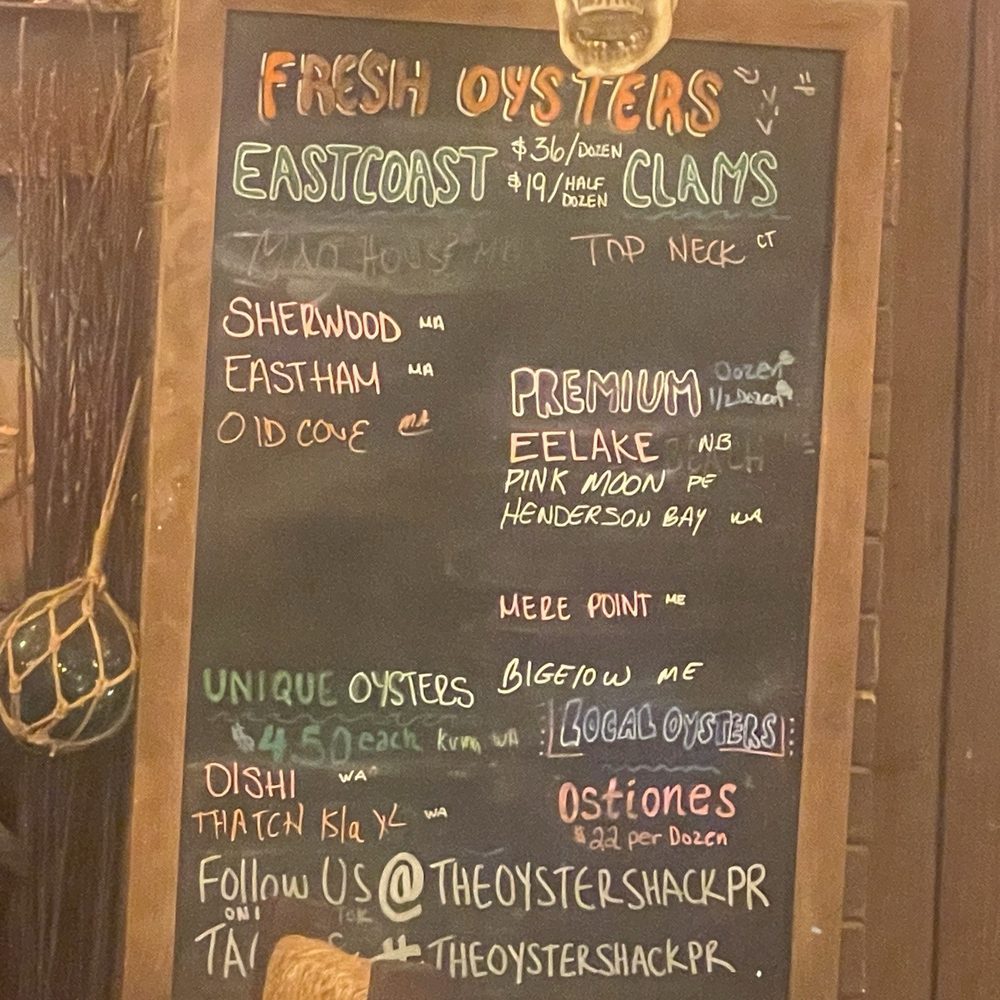 FRESH OYSTERS
EASTCOAST
$36/DOZEN
$19/HALF DOZEN
CLAMS
TOP NECK CT
SHERWOOD MA
EASTHAM MA
OLD COVE MA
PREMIUM
Dozen
1/2 Dozen
EELAKE NB
PINK MOON PE
HENDERSON BAY WA
MERE POINT ME
BIGELOW ME
UNIQUE OYSTERS
$4.50 each
WA
OISHI WA
XL WA
LOCAL OYSTERS
Ostiones
$22 per Dozen
Follow US @THEOYSTERSHACKPR
#THEOYSTERSHACKPR